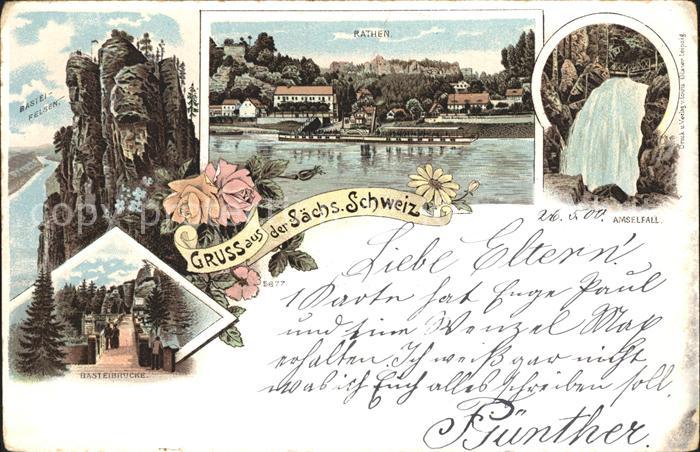 RATHEN.
BASTEI-
FELSEN.
Druck u. Verlag v. Louis Glaser, Leipzig.
AMSELFALL.
GRUSS aus der Sächs. Schweiz
5677
BASTEIBRÜCKE.
26. 5. 00.
Liebe Eltern!
1 Karte hat Enge Paul
und eine Wenzel Max
erhalten. Ich weiß gar nicht
was ich Euch alles schreiben soll.
Günther.